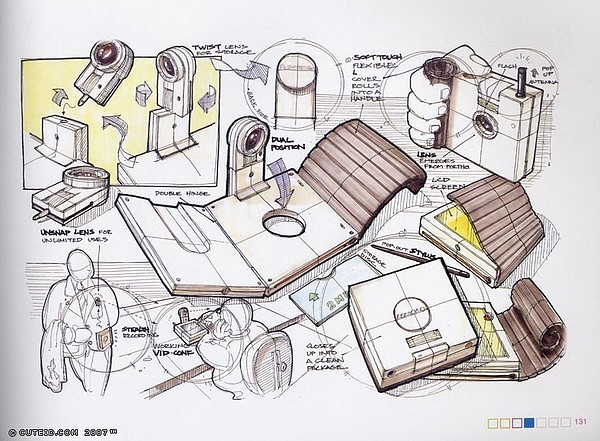 TWIST LENS
FOR STORAGE
SOFT TOUCH
FLEXIBLE
COVER
ROLLS
INTO A
HANDLE
FLASH
POP
UP
ANTENNA
DUAL
POSITION
LENS
EMERGES
FROM PORTHO.
LCD
SCREEN
DOUBLE HINGE
UNSNAP LENS FOR
UNLIMITED USES
POP-OUT STYLUS
STORAGE
STEADY
RECORDING
WORKING
VID-CONF
CLOSES
UP INTO
A CLEAN
PACKAGE
131
© CUTEID.COM 2007™